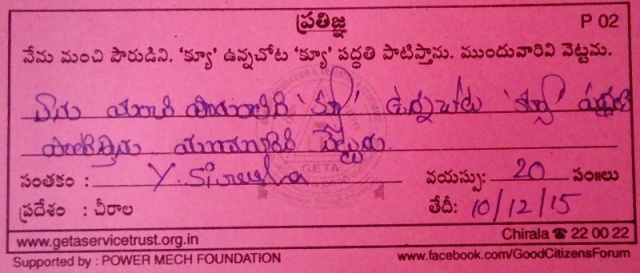 ప్రతిజ్ఞ P 02
నేను మంచి పౌరుడిని. 'క్యూ' ఉన్నచోట 'క్యూ' పద్ధతి పాటిస్తాను. ముందువారిని నెట్టను.
నేను మంచి పౌరుడిని 'క్యూ' ఉన్నచోట 'క్యూ' పద్ధతి
పాటిస్తాను ముందువారిని నెట్టను.
GETA
సంతకం : Y. Sireesha వయస్సు: 20 సం॥లు
ప్రదేశం : చీరాల తేదీ: 10/12/15
www.getaservicetrust.org.in Chirala ☎ 22 00 22
Supported by : POWER MECH FOUNDATION www.facebook.com/GoodCitizensForum